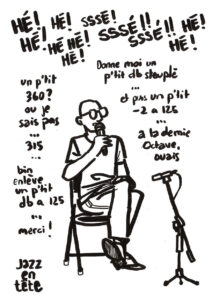 HÉ! HÉ! SSSÉ!
HÉ! HÉ HÉ! SSSÉ!! HÉ!
HÉ! SSSÉ!! HÉ!
un p'tit
360?
ou je
sais pas
...
315
...
bin
enlève
un p'tit
db a 125
...
merci!
Donne moi un
p'tit db steuplé
...
et pas un p'tit
-2 a 125
...
a la demie
Octave,
ouais
JAZZ
EN
TÊTE